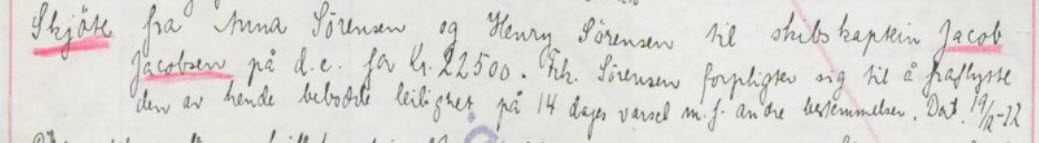 Skjöte fra Anna Sörensen og Henry Sörensen til skibskaptein Jacob
Jacobsen på d.e. for kr. 22500. Frk. Sörensen forpligter sig til å fraflytte
den av hende bebodde leilighet på 14 dages varsel m.f. andre bestemmelser. Dat. 19/12-22